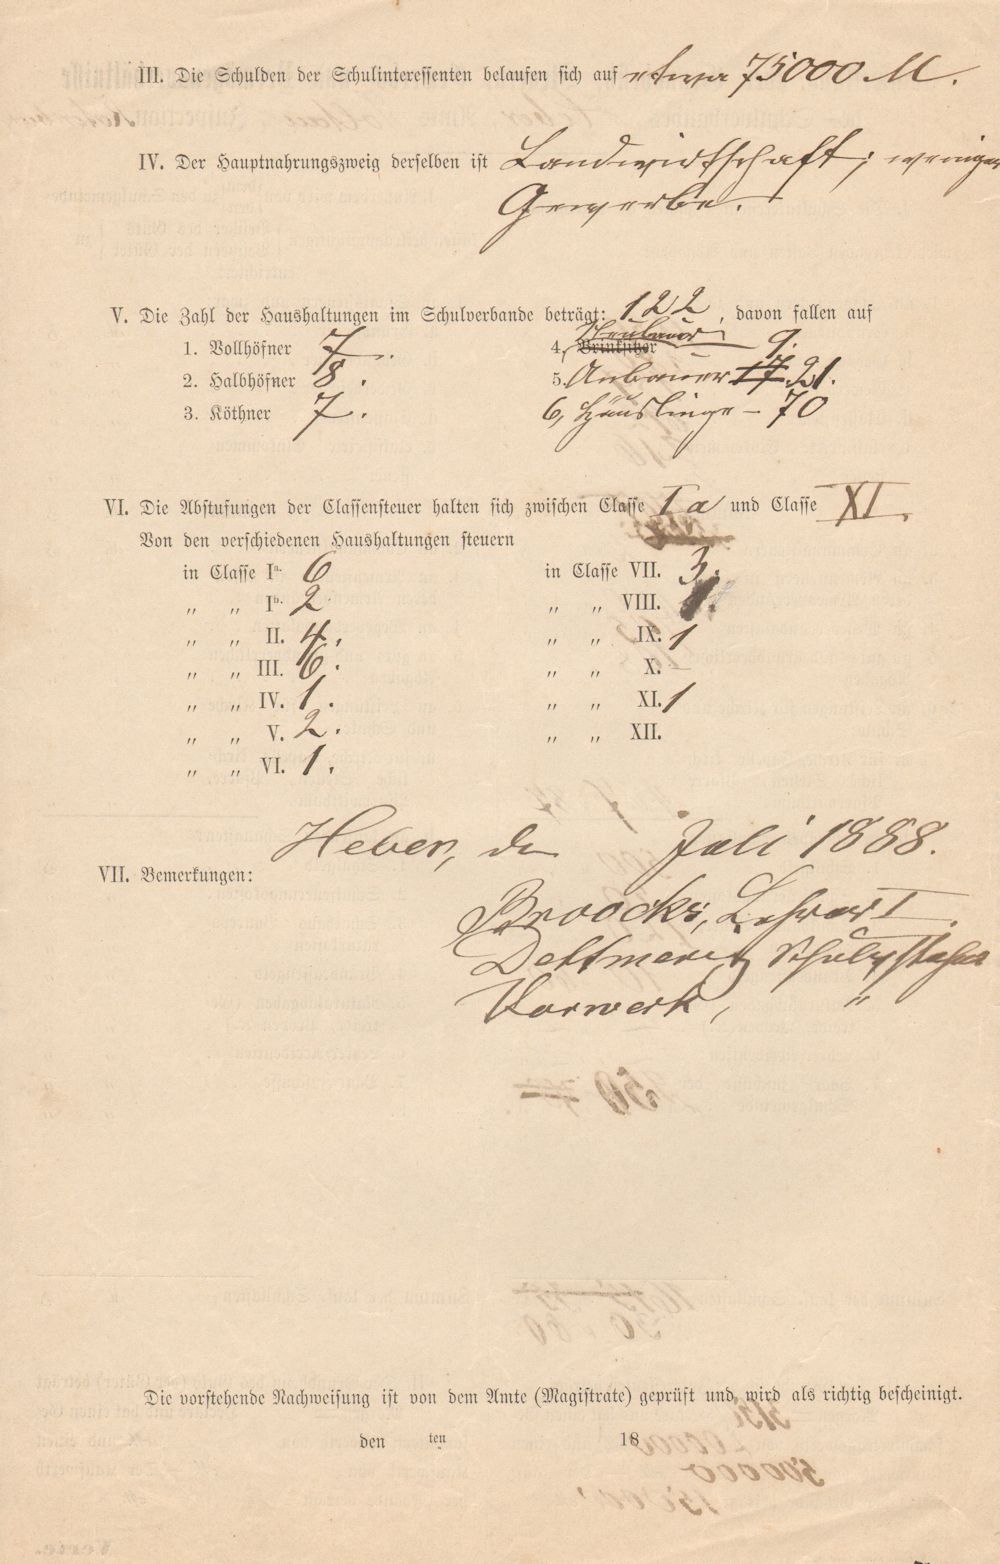 III. Die Schulden der Schulinteressenten belaufen sich auf etwa 75000 M.
IV. Der Hauptnahrungszweig derselben ist Landwirtschaft; weniger
Gewerbe.
V. Die Zahl der Haushaltungen im Schulverbande beträgt: 122, davon fallen auf
1. Vollhöfner 7.
4, Brinksitzer Neubauer 9.
2. Halbhöfner 8.
5. Anbauer 17 21.
3. Köthner 7.
6, Häuslinge – 70
VI. Die Abstufungen der Classensteuer halten sich zwischen Classe Ia und Classe XI.
Von den verschiedenen Haushaltungen steuern
in Classe Ia. 6
in Classe VII. 3.
„ „ Ib. 2
„ „ VIII. 1.
„ „ II. 4.
„ „ IX. 1
„ „ III. 6.
„ „ X. –
„ „ IV. 1.
„ „ XI. 1
„ „ V. 2.
„ „ XII.
„ „ VI. 1.
Heber, den Juli 1888.
VII. Bemerkungen:
Broocks, Lehrer I.
Dettmer, Schulvorsteher
Vorwerk, „
Die vorstehende Nachweisung ist von dem Amte (Magistrate) geprüft und wird als richtig bescheinigt.
den ten 18